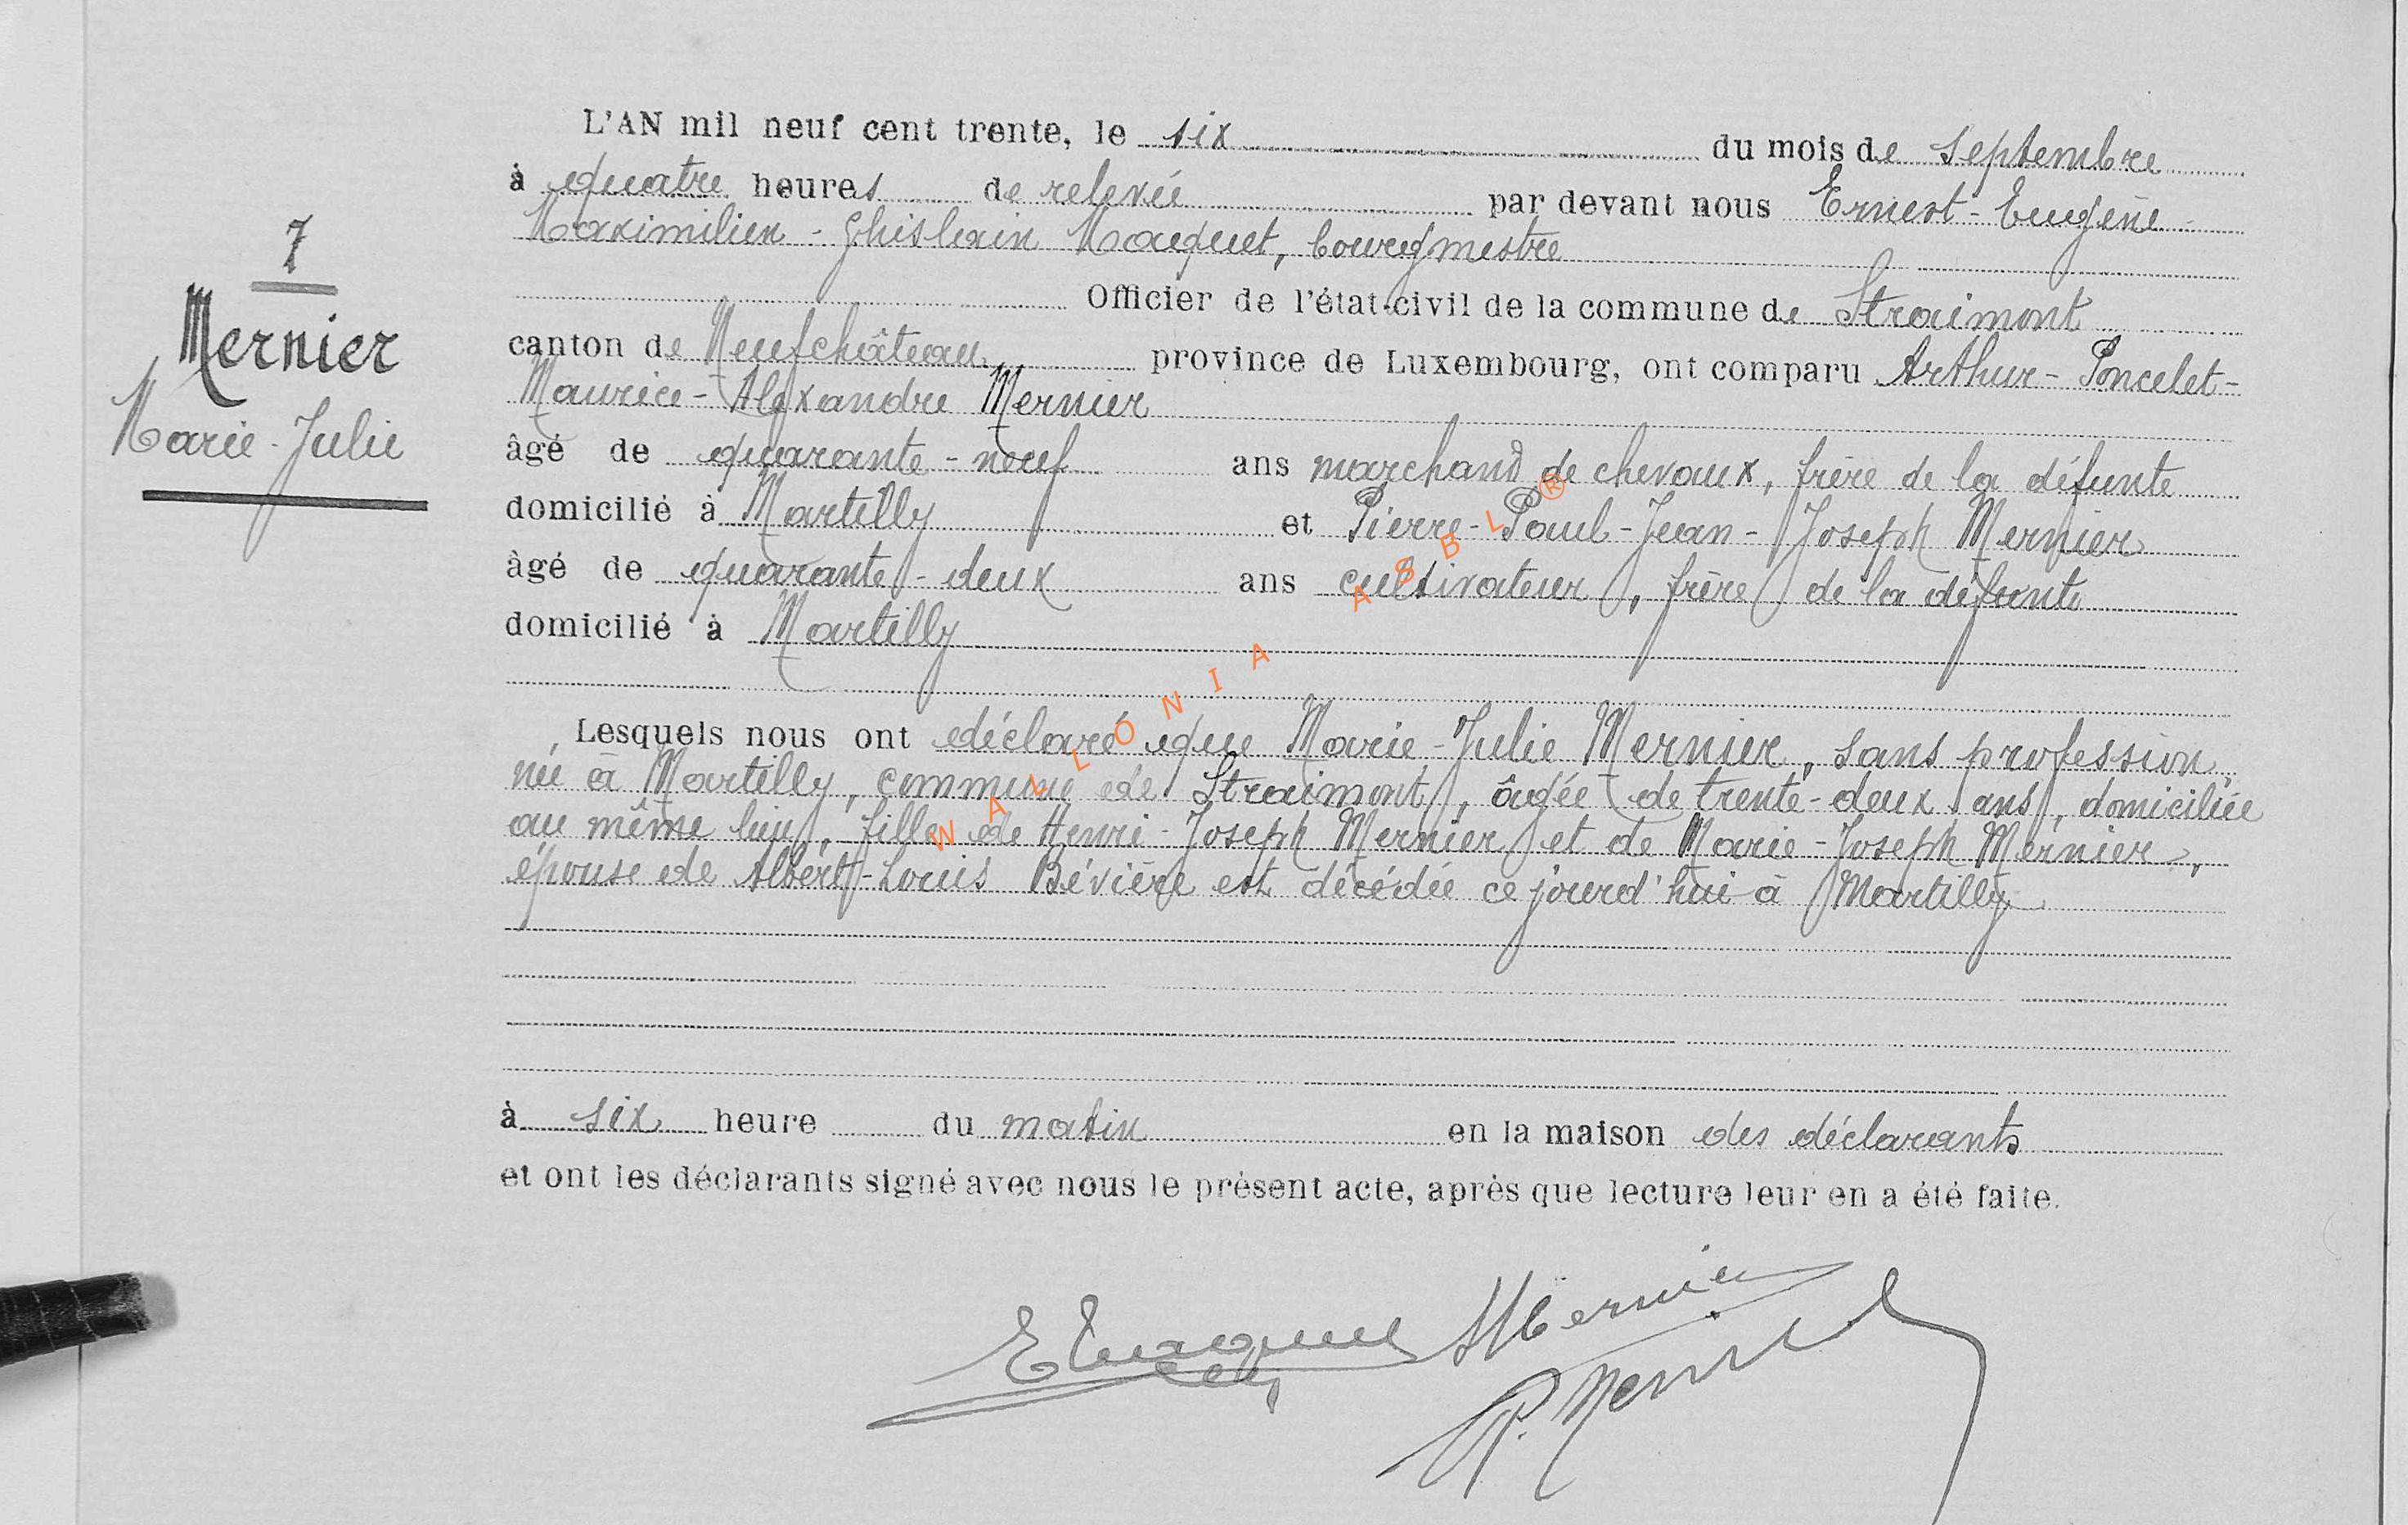 7
Mernier
Marie-Julie
L'AN mil neuf cent trente, le six du mois de septembre
à quatre heures de relevée par devant nous Ernest-Eugène-
Maximilien-Ghislain Maquet, bourgmestre
Officier de l'état-civil de la commune de Straimont
canton de Neufchâteau province de Luxembourg, ont comparu Arthur-Poncelet-
Maurice-Alexandre Mernier
âgé de quarante-neuf ans marchand de chevaux, frère de la défunte
domicilié à Martilly et Pierre-Paul-Jean-Joseph Mernier
âgé de quarante-deux ans cultivateur, frère de la défunte
domicilié à Martilly
Lesquels nous ont déclaré que Marie-Julie Mernier, sans profession,
née à Martilly, commune de Straimont, âgée de trente-deux ans, domiciliée
au même lieu, fille de Henri-Joseph Mernier et de Marie-Joseph Mernier,
épouse de Albert-Louis Bévière est décédée ce jourd'hui à Martilly
à six heure du matin en la maison des déclarants
et ont les déclarants signé avec nous le présent acte, après que lecture leur en a été faite.
E Maquet
AMernier
P. Mernier
WALLONIA ASBL®